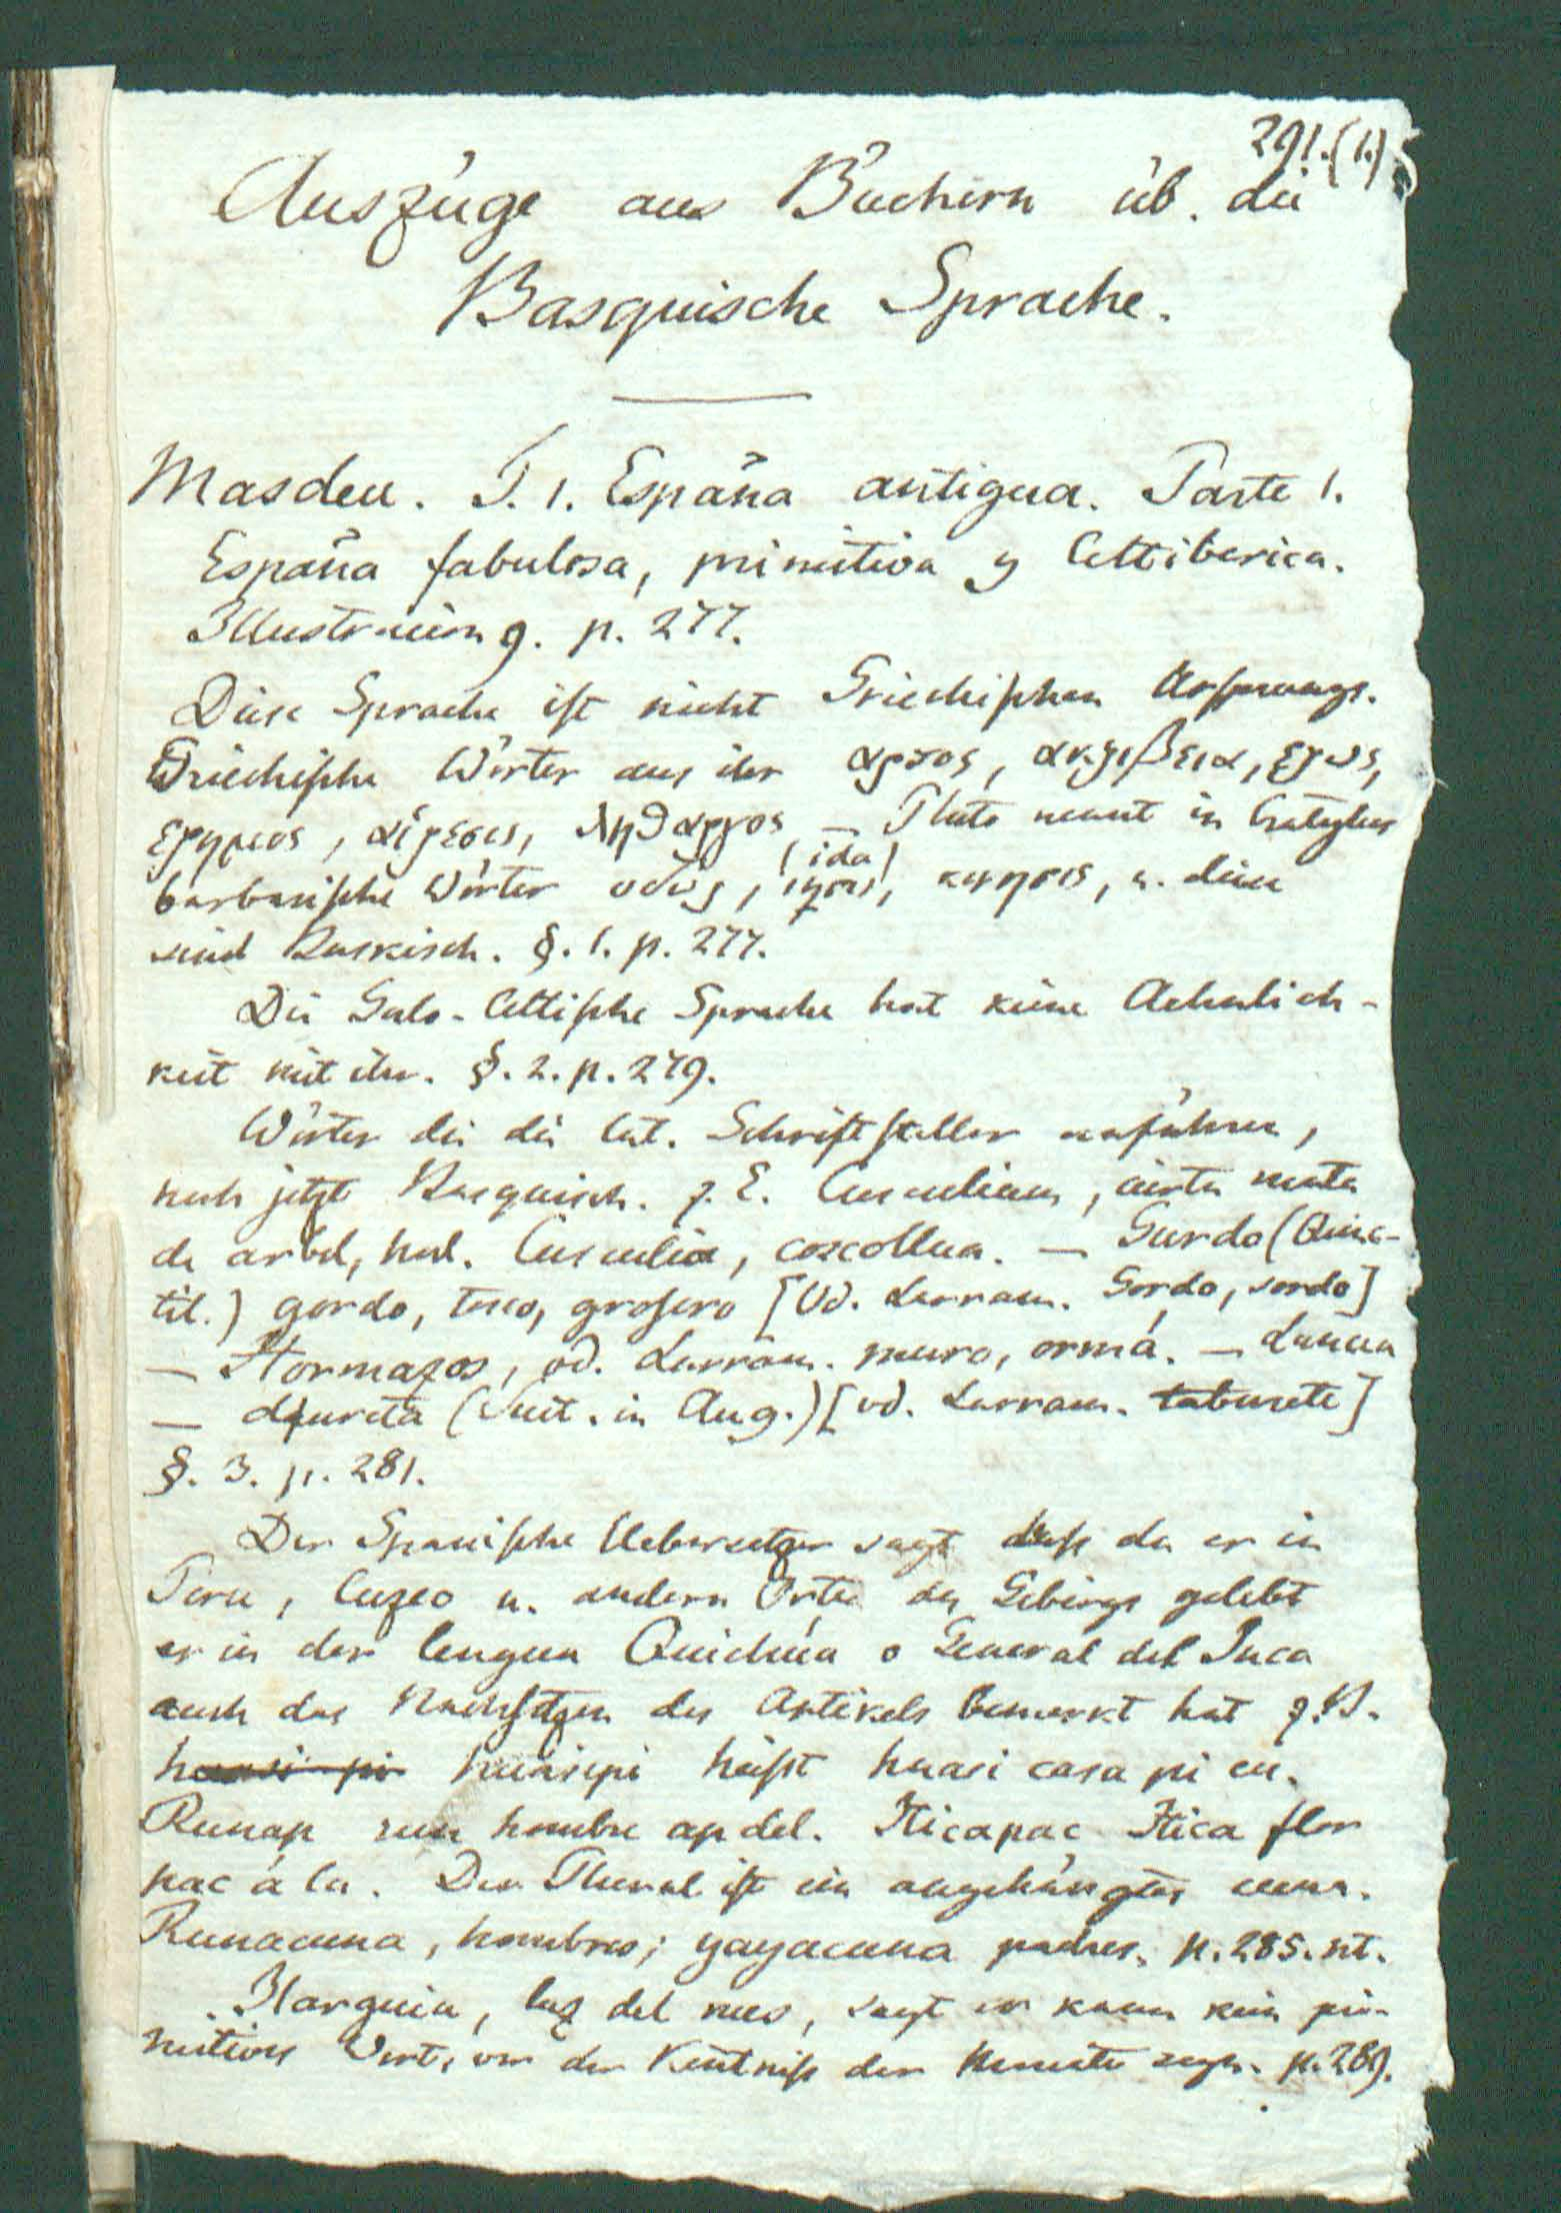 291.(1.)
Auszüge aus Büchern üb. die
Basquische Sprache.
Masdeu. T. 1. España antigua. Parte 1.
España fabulosa, primitiva y Celtiberica.
Illustracion 9. p. 277.
Diese Sprache ist nicht Griechischen Ursprungs.
Griechische Wörter aus ihr αρτος, ακριβεια, ερως,
ερημος, αἱρεσις, ληθαργος – Plato nennt in Cratylus
(ida)
barbarische Wörter υδωρ, κινησις, u. diese
sind Baskisch. §. 1. p. 277.
Die Galo-Celtische Sprache hat keine Aehnlich-
keit mit ihr. §. 2. p. 279.
Wörter die die lat. Schriftsteller anführen,
noch jetzt Basquisch. z. E. Cusculium, cierta mata
de arbol, hod. Cusculia, coscollua. – Gurdo (Quinc-
til.) gordo, tosco, grosero [vd. Larram. Gordo, sordo]
– Hormazos, vd. Larram. muro, orma. – Lancea
– dfureta (Suet. in Aug.) [vd. Larram. taburete]
§. 3. p. 281.
Der Spanische Uebersetzer sagt dass da er in
Peru, Cuzco u. andern Orten des Gebirgs gelebt
er in der lengua Quichúa o General del Inca
auch das Nachsetzen des Artikels bemerkt hat z. B.
huasi pi huasipi heisst huasi casa pi en.
Runap runa hombre ap del. Tticapac Ttica flor
pac á la. Der Plural ist ein angehängtes cuna.
Runacuna, hombres; yayacuna padres. p. 285. nt.
Ilarguia, luz del mes, sagt er kann kein pri-
mitives Wort, vor der Kentniss der Monate seyn. p. 289.